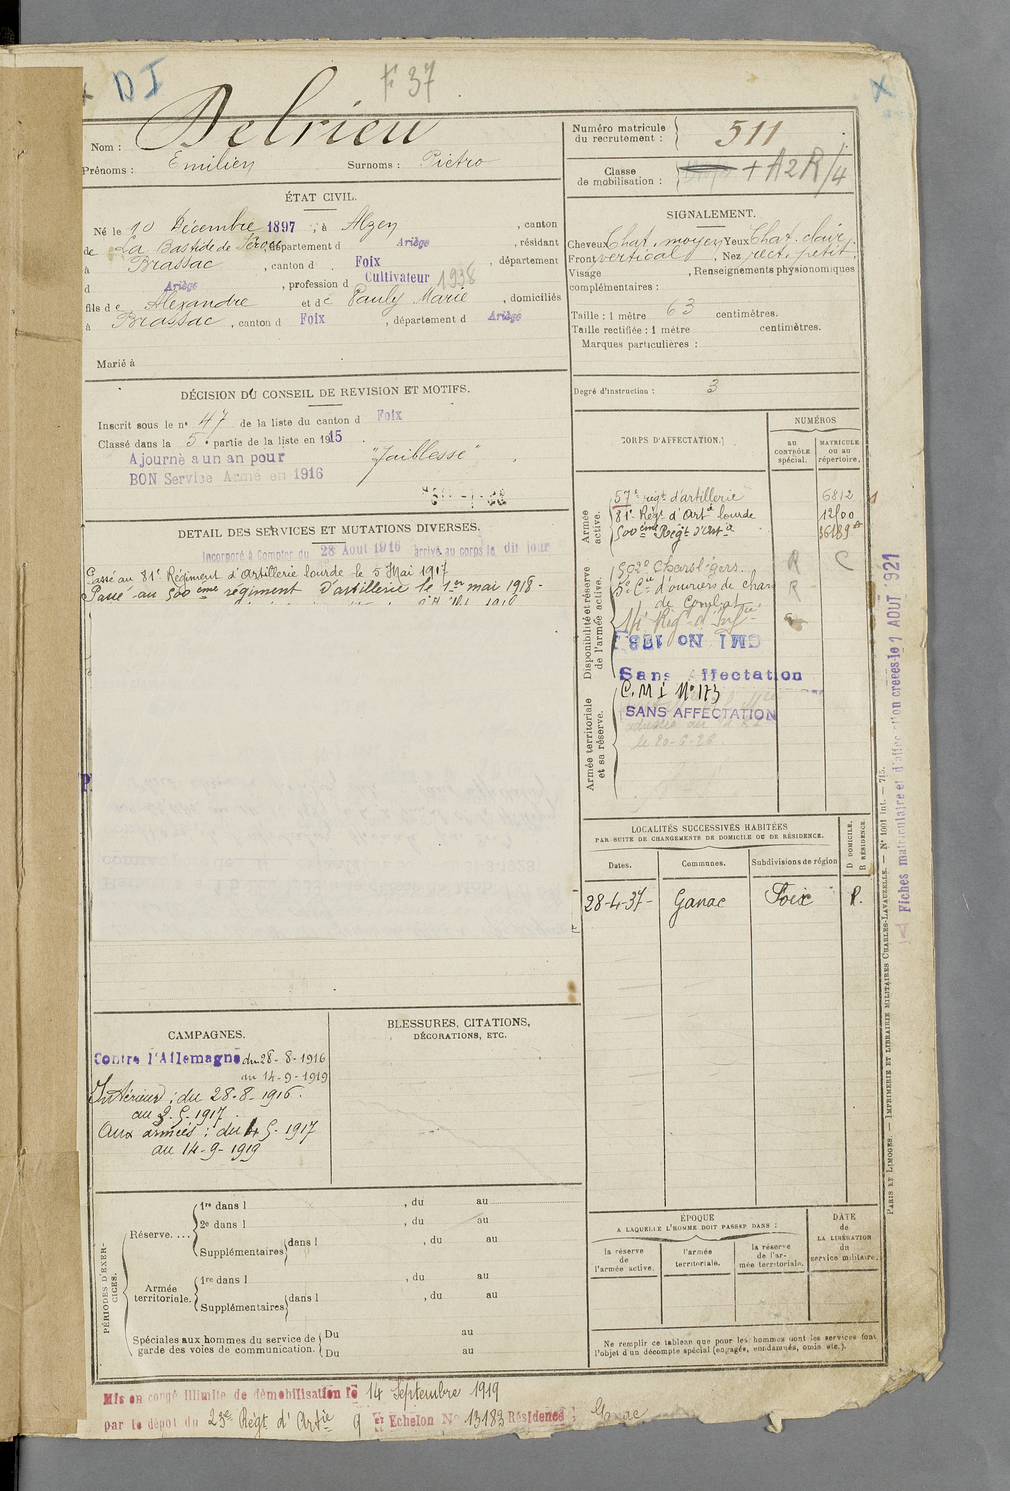 DI
F 37
X
Nom : Delrieu
Prénoms : Emilien Surnoms : Pietro
Numéro matricule du recrutement : 511
Classe de mobilisation : + A2R/4
ÉTAT CIVIL.
Né le 10 Décembre 1897, à Alzen, canton
de La Bastide de Sérou, département d Ariège, résidant
à Brassac, canton d Foix, département
d Ariège, profession d Cultivateur 1938
fils de Alexandre et de Pauly Marie, domiciliés
à Brassac, canton d Foix, département d Ariège
Marié à
SIGNALEMENT.
Cheveux Chat. moyen Yeux Chat. clair
Front vertical, Nez rect. petit.
Visage , Renseignements physionomiques
complémentaires :
Taille : 1 mètre 63 centimètres.
Taille rectifiée : 1 mètre centimètres.
Marques particulières :
Degré d'instruction : 3
DÉCISION DU CONSEIL DE REVISION ET MOTIFS.
Inscrit sous le n° 47 de la liste du canton d Foix
Classé dans la 5e partie de la liste en 1915.
Ajourné a un an pour "Faiblesse"
BON Service Armé en 1916
DETAIL DES SERVICES ET MUTATIONS DIVERSES.
Incorporé à Compter du 28 Aout 1916 arrivé au corps le dit jour
Passé au 81e Régiment d'artillerie lourde le 5 Mai 1917
Passé au 500ème régiment d'artillerie le 1er mai 1918-
CORPS D'AFFECTATION.
NUMÉROS
au CONTRÔLE spécial.
MATRICULE ou au répertoire.
Armée active.
57e régt d'artillerie 6812
81e Régt d'Artie lourde 12100
500ème Régt d'Artie 16189
Disponibilité et réserve de l'armée active.
502e Chars légers. R C
5e Cie d'ouvriers de chars R
de Combat
14e Régt d'Inftie
CMI No 173
Sans Affectation
Armée territoriale et sa réserve.
C.M.I N°173
SANS AFFECTATION
le 20-5-26.
LOCALITÉS SUCCESSIVES HABITÉES
PAR SUITE DE CHANGEMENTS DE DOMICILE OU DE RÉSIDENCE.
Dates. Communes. Subdivisions de région D DOMICILE. R RÉSIDENCE.
28-4-37- Ganac Foix R.
CAMPAGNES.
Contre l'Allemagne du 28-8-1916
au 14-9-1919
Intérieur : du 28-8-1916.
au 3.5.1917.
Aux armées : du 4-5-1917
au 14-9-1919
BLESSURES, CITATIONS,
DÉCORATIONS, ETC.
PÉRIODES D'EXERCICES.
Réserve....
1re dans l , du au
2e dans l , du au
Supplémentaires dans l , du au
Armée territoriale.
1re dans l , du au
Supplémentaires dans l , du au
Spéciales aux hommes du service de garde des voies de communication.
Du au
Du au
ÉPOQUE
A LAQUELLE L'HOMME DOIT PASSER DANS :
la réserve de l'armée active.
l'armée territoriale.
la réserve de l'armée territoriale.
DATE de LA LIBÉRATION du service militaire.
Ne remplir ce tableau que pour les hommes dont les services font
l'objet d'un décompte spécial (engagés, condamnés, omis, etc.).
PARIS ET LIMOGES. — IMPRIMERIE ET LIBRAIRIE MILITAIRES CHARLES-LAVAUZELLE. — N° 1001 int. — 715.
Fiches matriculaire et d'affectation créées le 1 AOUT 1921
Mis en congé illimité de démobilisation le 14 Septembre 1919
par le dépôt du 23e Régt d'Artie 9 Echelon N° 13183 Résidence : Ganac